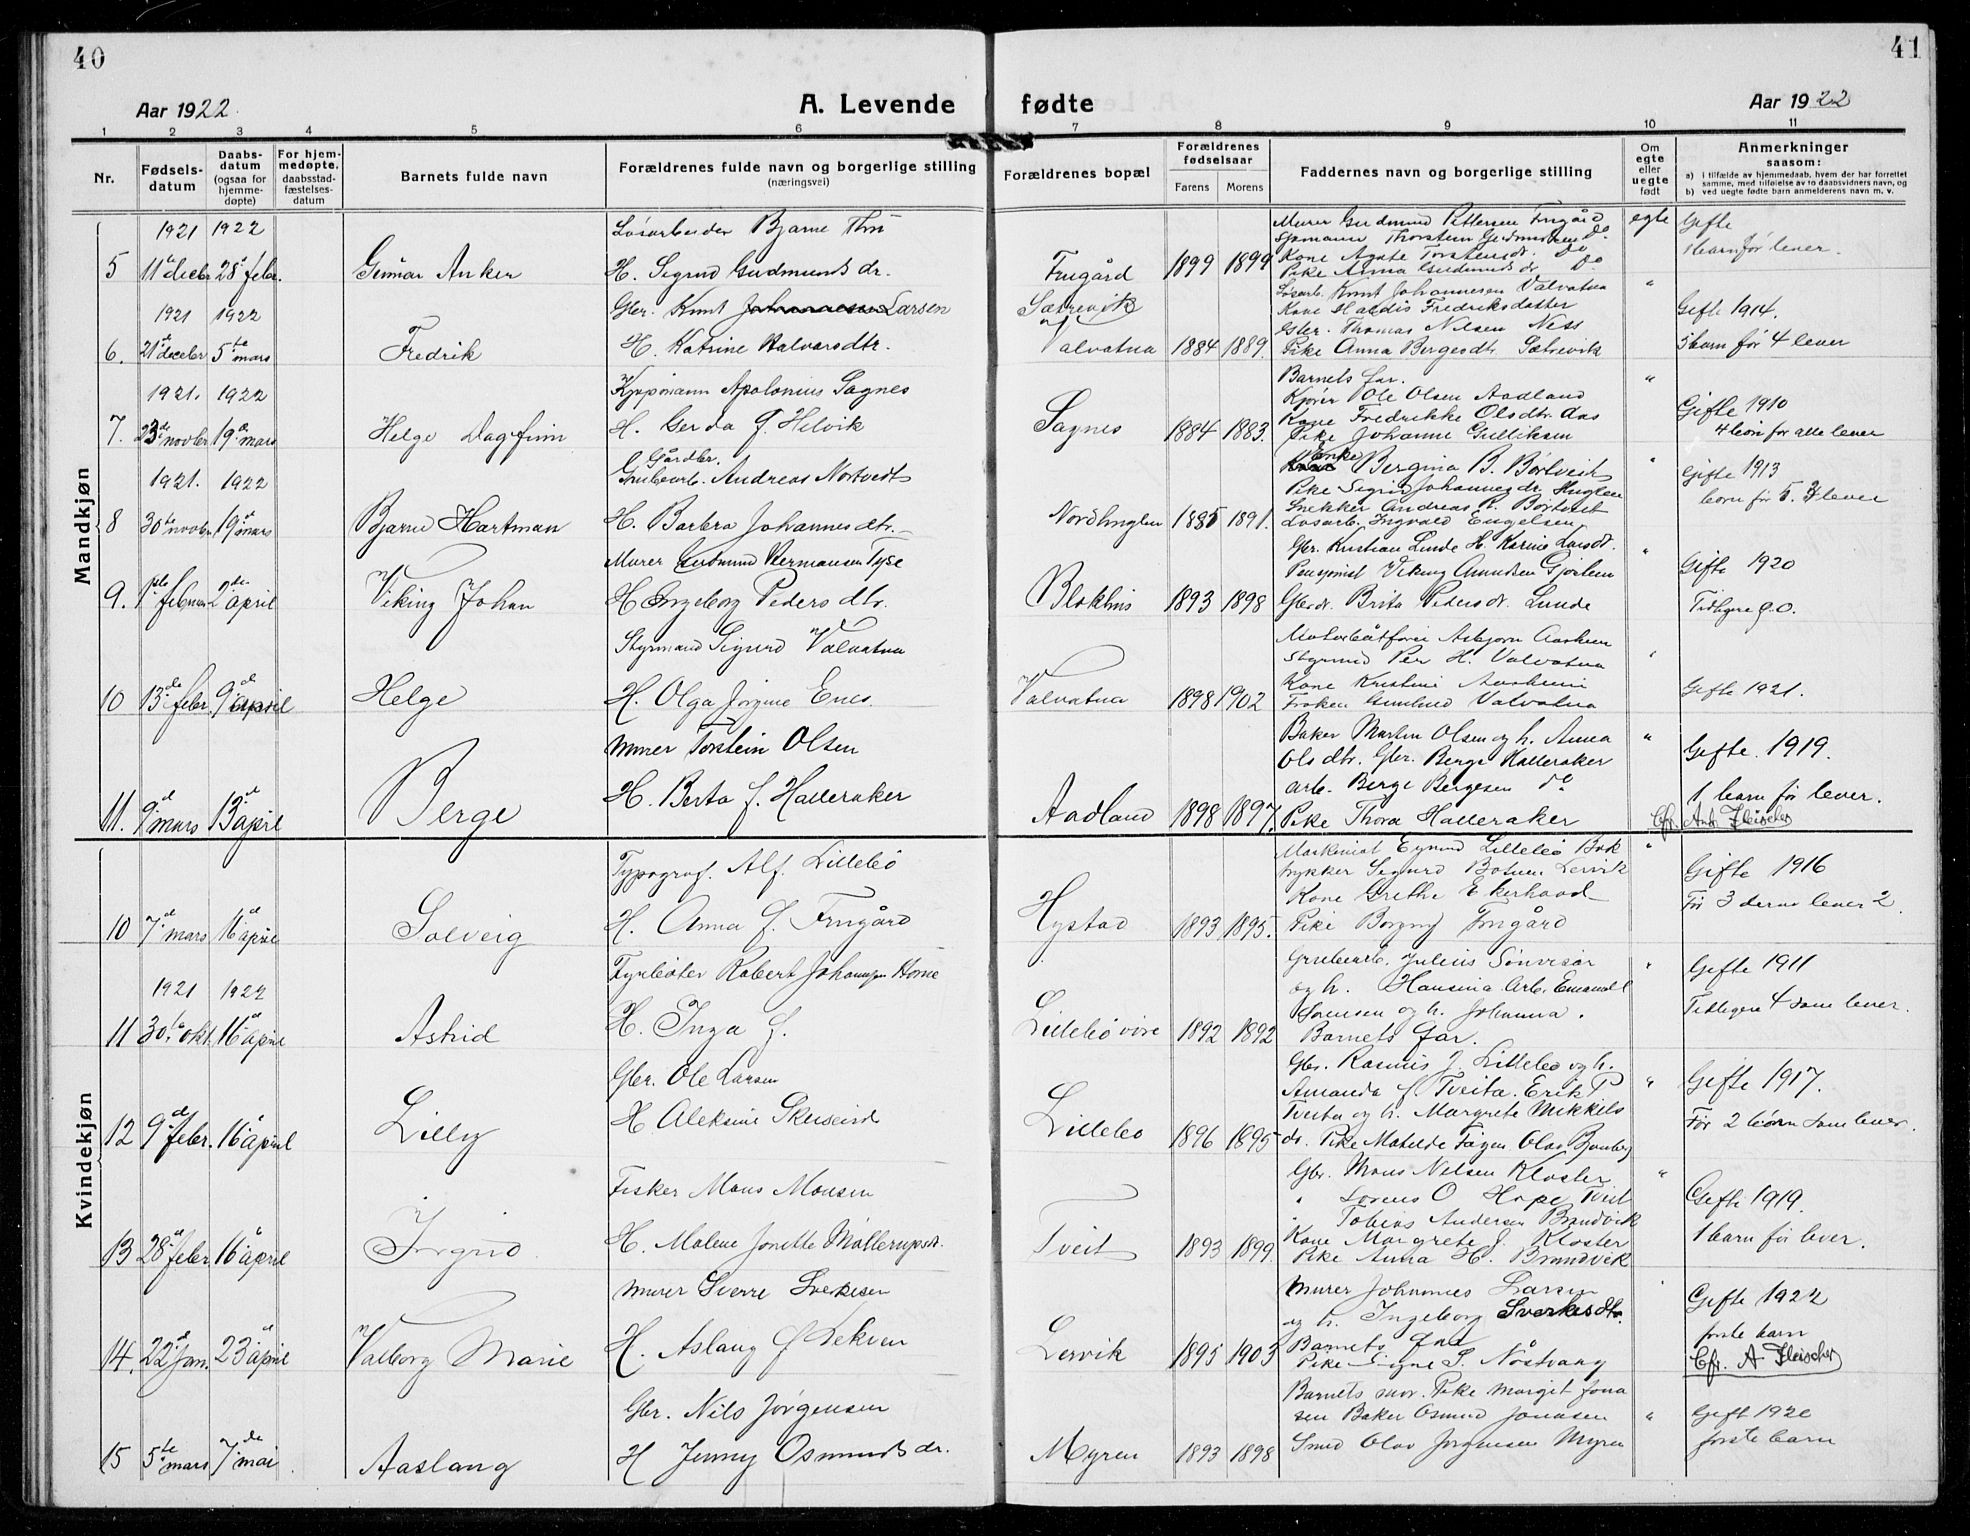 40
41
Aar 1922.
A. Levende fødte
Aar 1922
1 2 3 4 5 6 7 8 9 10 11
Nr.
Fødsels-
datum
Daabs-
datum
(ogsaa for
hjemme-
døpte)
For hjem-
medøpte.
daabsstad-
fæstelses-
datum
Barnets fulde navn
Forældrenes fulde navn og borgerlige stilling
(næringsvei)
Forældrenes bopæl
Forældrenes
fødselsaar
Farens Morens
Faddernes navn og borgerlige stilling
Om
egte
eller
uegte
født
Anmerkninger
saasom:
a) i tilfælde av hjemmedaab, hvem der har forrettet
samme, med tilføielse av to daabsvidners navn, og
b) ved uegte fødte barn anmelderens navn m. v.
Mandkjøn
1921 1922
5 11te decbr 28de febr.
Gunnar Anker
Løsarbeider Bjarne
H. Sigrid Gudmundsdr.
Frugård
1899 1899
Murer Gudmund Pettersen Frugård
Sjømann Thorstein Gudmundsen Do
Kone Agate Torsteinsdr. Do
Pike Anna Gudmundsdr Do
egte
Gifte
1 barn før lever.
1921 1922
6. 21de decebr 5te mars
Fredrik
Gbr. Knut Johannesen Larsen
H. Katrine Halvarsdtr.
Sætrevik
Valvatna
1884 1889.
Løsarb. Knut Johannesen Valvatna
Kone Haldis Fredriksdatter
Gbr. Thomas Nilsen Ness
Pike Anna Bergesdtr. Sætrevik
"
Gifte 1914.
5 barn før 4 lever
1921. 1922
7. 23de novbr 19de mars
Helge Dagfinn
Kjøpmann Apolonius Sagnes
H. Gerda f. Helvik
Sagnes
1884 1883.
Barnets far.
Kjører Ole Olsen Aadland
Kone Fredrikke Olsdtr. Aas
Pike Johanne Gulliksen
"
Gifte 1910
4 børn før alle lever
1921. 1922
8 30te novbr 19de mars
Bjarne Hartman
Gårdbr.
Grubearb. Andreas Nortvedt
H. Barbra Johannesdtr.
Nordhuglen
1885 1891.
Enke
Kone Bergina B. Børtveit
Pike Sigrid Johannesdr. Huglen
Snekker Andreas A. Børtveit
Løsarb. Ingvald Engelsen
"
Gifte 1913
born før 5. 3 lever
9. 1ste februar 2den april
Viking Johan
Murer Gudmund Hermansen Tyse
H. Ingeborg Pedersdtr.
Blokhus
1893 1898
Gbr. Kristian Lunde H. Karine Larsdt.
Pensjonist Viking Amundsen
Gbrdt. Brita Pedersdt. Lunde
"
Gifte 1920
Tidligere 0.0.
10 13de febr. 9de april
Helge
Styrmand Sigurd Valvatna
H. Olga Jørgine Enes.
Valvatna
1898 1902
Motorbåtfører Asbjørn Aarheim
Styrmd Per H. Valvatna
Kone Kristine Aarheim
Frøken Gunhild Valvatna
"
Gifte 1921.
11. 9de mars 13de april
Berge
Murer Torstein Olsen
H. Berta f. Halleraker
Aadland
1898 1897.
Baker Martin Olsen og h. Anna
Olsdtr. Gbr. Berge Halleraker
Arb. Berge Bergesen do
Pike Thora Halleraker
"
Gifte. 1919.
1 barn før lever.
Cfr. Ant. Fleischer
Kvindekjøn
10 7de mars 16de april
Solveig
Typograf. Alf. Lillebø
H. Anna f. Frugård
Hystad
1893 1895.
Maskinist Eyvind Lillebø Bok
trykker Sigurd Botnen Lervik
Kone Grethe Ekerhaad
Pike Borgny Frugård
"
Gifte 1916
Før 3 derav lever 2.
1921 1922
11 30te okt. 16de april
Astrid
Fyrbøter Robert Johansen Horne
H. Inga f.
Lillebø vire
1892 1892
Grubearb. Julius Sønvisar
og h. Hansina Arb. Emanuel
Larsen og h. Johanna.
Barnets far.
"
Gifte 1911
Tidligere 4 som lever.
12 9de febr. 16de april
Lilly
Gbr. Ole Larsen
H. Aleksine Skeiseid
Lillebø
1896 1895
Gbr. Rasmus J. Lillebø og h.
Amanda f. Tveita. Erik P
Tveita og h. Margrete Mikkels
dr. Pike Matilde Olav
"
Gifte 1917.
Før 2 børn som lever.
13 28de febr 16de april
Ingrid
Fisker Mons Monsen
H. Malene Jonette Møllerupsdt.
Tveit
1893 1899.
Gbr. Mons Nelsen Kloster
" Lorens O Hope Tveit
" Tobias Andersen Brandvik
Kone Margrete J. Kloster
Pike Anna H. Brandvik
"
Gifte 1919.
1 barn før lever.
14. 22de jan. 23de april
Valborg Marie
Murer Sverre Sverkesen
H. Aslaug f Lekven
Lervik
1895 1903
Murer Johannes Larsen
og h. Ingeborg Sverkesdtr.
Barnets far
Pike Signe S. Nøstvang
"
Gifte 1922
første barn
Cfr. A. Fleischer
15 5te mars 7de mai
Aaslaug
Gbr. Nils Jørgensen
H Jenny Osmundsdr.
Myren
1893 1898
Barnets mor. Pike Margit Jona
sen Baker Osmund Jonasen
Smed Olav Jørgensen Myren
"
Gift 1920
første barn